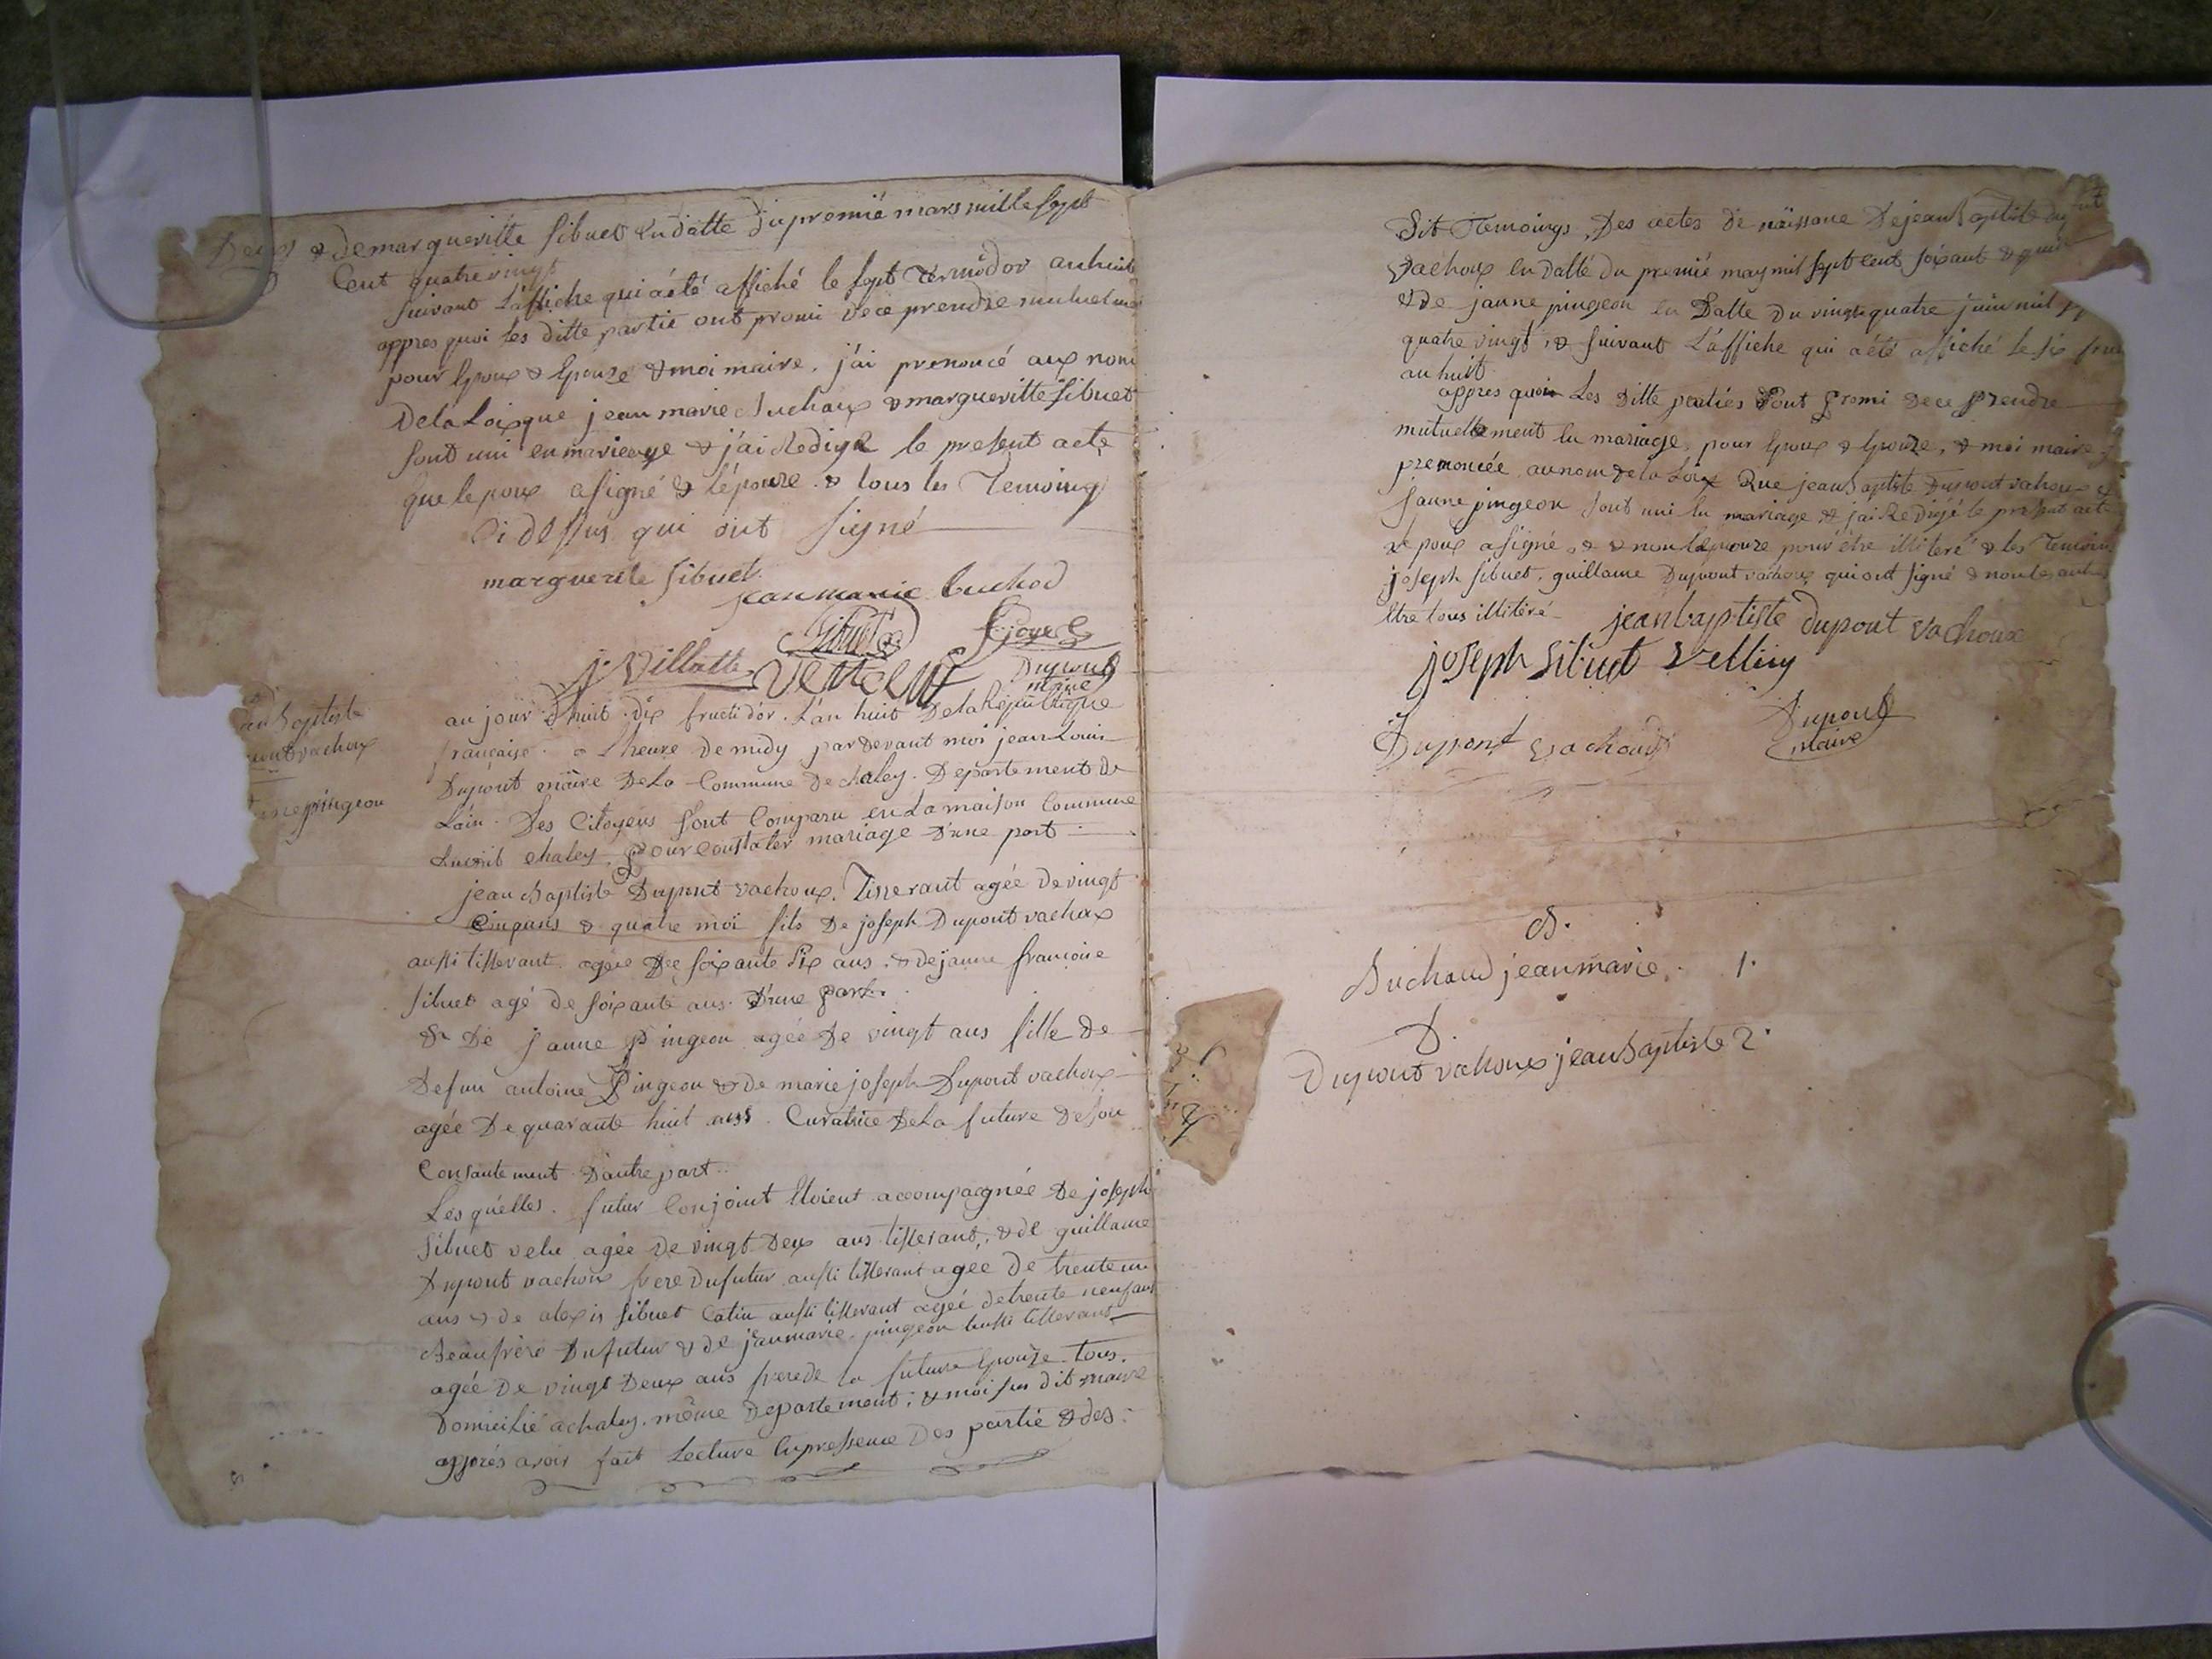 Deux & de margueritte Sibuet en datte du premié mars mille sept
Cent quatre vingt
suivant L'affiche qui a été affiché le sept termidor an huit
appres quoi les ditte partie ont promi de ce prendre mutuelment
pour Epoux & Epouze & moi maire, j'ai prenoncé aux nom
De la Loix que jean marie Buchoux & margueritte Sibuet
sont uni en mariage & j'ai Redigé le present acte
que lepoux a signé & lépouze & tous les Temoing
Ci dessus qui ont signé
marguerite Sibuet
jean marie buchod
Sibuet Goyet
j. Villatte
Dupont
maire
an Baptiste
pont vachoux
nne pingeon
au jour d'huit dix fructidor. L'an huit De la Republique
française. a Lheure de midy pardevant moi jean Louis
Dupont maire De La Commune de chaley. Departement de
L'ain. Des Citoyens sont Comparu en La maison Commune
dudit chaley. pour Constater mariage D'une part
jean Baptiste Dupont vachoux. Tisserant agée de vingt
Cinq ans & quatre moi fils De joseph Dupont vachoux
aussi tisserant agée De soixante six ans. & de janne françoise
Sibuet agé de soixante ans. D'une part.
& De janne Pingeon agée De vingt ans fille de
Defun antoine Pingeon & de marie joseph Dupont vachoux
agée De quarante huit ans. Curatrice De La future De son
Consantement D'autre part.
Les qu'elles. futur Conjoint Etoient accompagnée De joseph
Sibuet velu agée De vingt Deux ans tisserant, & de guillaume
Dupont vachoux frere du futur aussi tisserant agée De trente un
ans & de alexis Sibuet Catin aussi tisserant agée de trente neuf ans
Beaufrère Du futur & de jeanmarie pingeon aussi tisserans
agée De vingt Deux ans frere de la future Epouze. tous.
Domicilié a chaley. même Departement; & moi sus dit maire
apprés avoir fait Lecture En pressence Des partie & des
Dit Temoings, Des actes de naissance De jean Baptiste du pont
vachoux En datté du premié may mil sept cent soixant &
& de janne pingeon En Datte Du vingt quatre juin mil
quatre vingt, & suivant L'affiche qui a été affiché le six
an huit
appres quoi Les Ditte partiés Sont promi De ce prendre
mutuellement En mariage, pour Epoux & Epouze, & moi maire
prenoncée au nom de la Loix Que jean Baptiste Dupont vachoux &
janne pingeon sont uni En mariage & j'ai Redigé le présent acte
Lepoux a signé, & & non Lepouze pour être illiteré & les Temoins
joseph Sibuet, guillaume Dupont vachoux qui ont signé & non les autres
Etre tous illitéré
jean baptiste dupont vachoux
joseph Sibuet
Dupont vachoux
Dupont
maire
B.
Buchoud jean marie. 1.
D.
Dupont vachoux jean Baptiste 2.